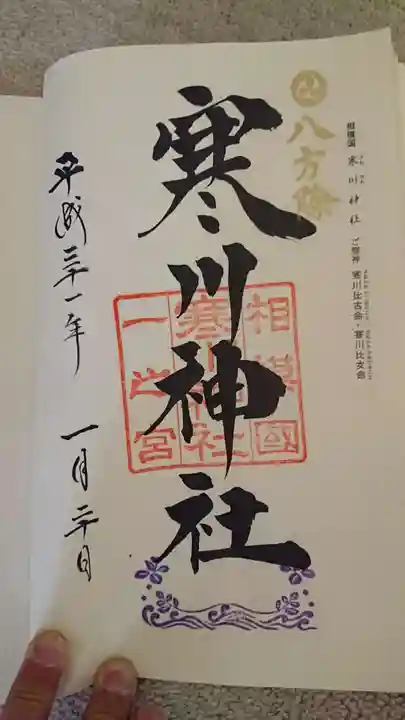 相模国 寒川神社 ご祭神 寒川比古命・寒川比女命
八方除
寒川神社
相模國
寒川神社
一之宮
平成三十一年 一月二十日